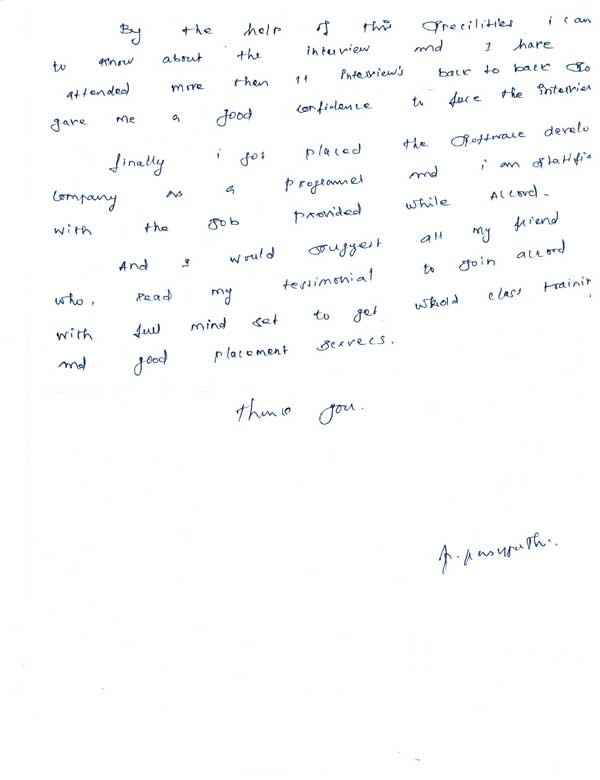 By the help of this Frecilities i can
to know about the interview and I have
attended more then 11 Interview's back to back So
gave me a good confidence to face the Interview
finally i got placed the Software develo
Company as a Programmer and i am Statific
with the Job provided while Accord.
And I would Suggest all my friend
who, read my testimonial to Join accord
with full mind set to get whold class trainin
and good placement Servecs.
Thank you.